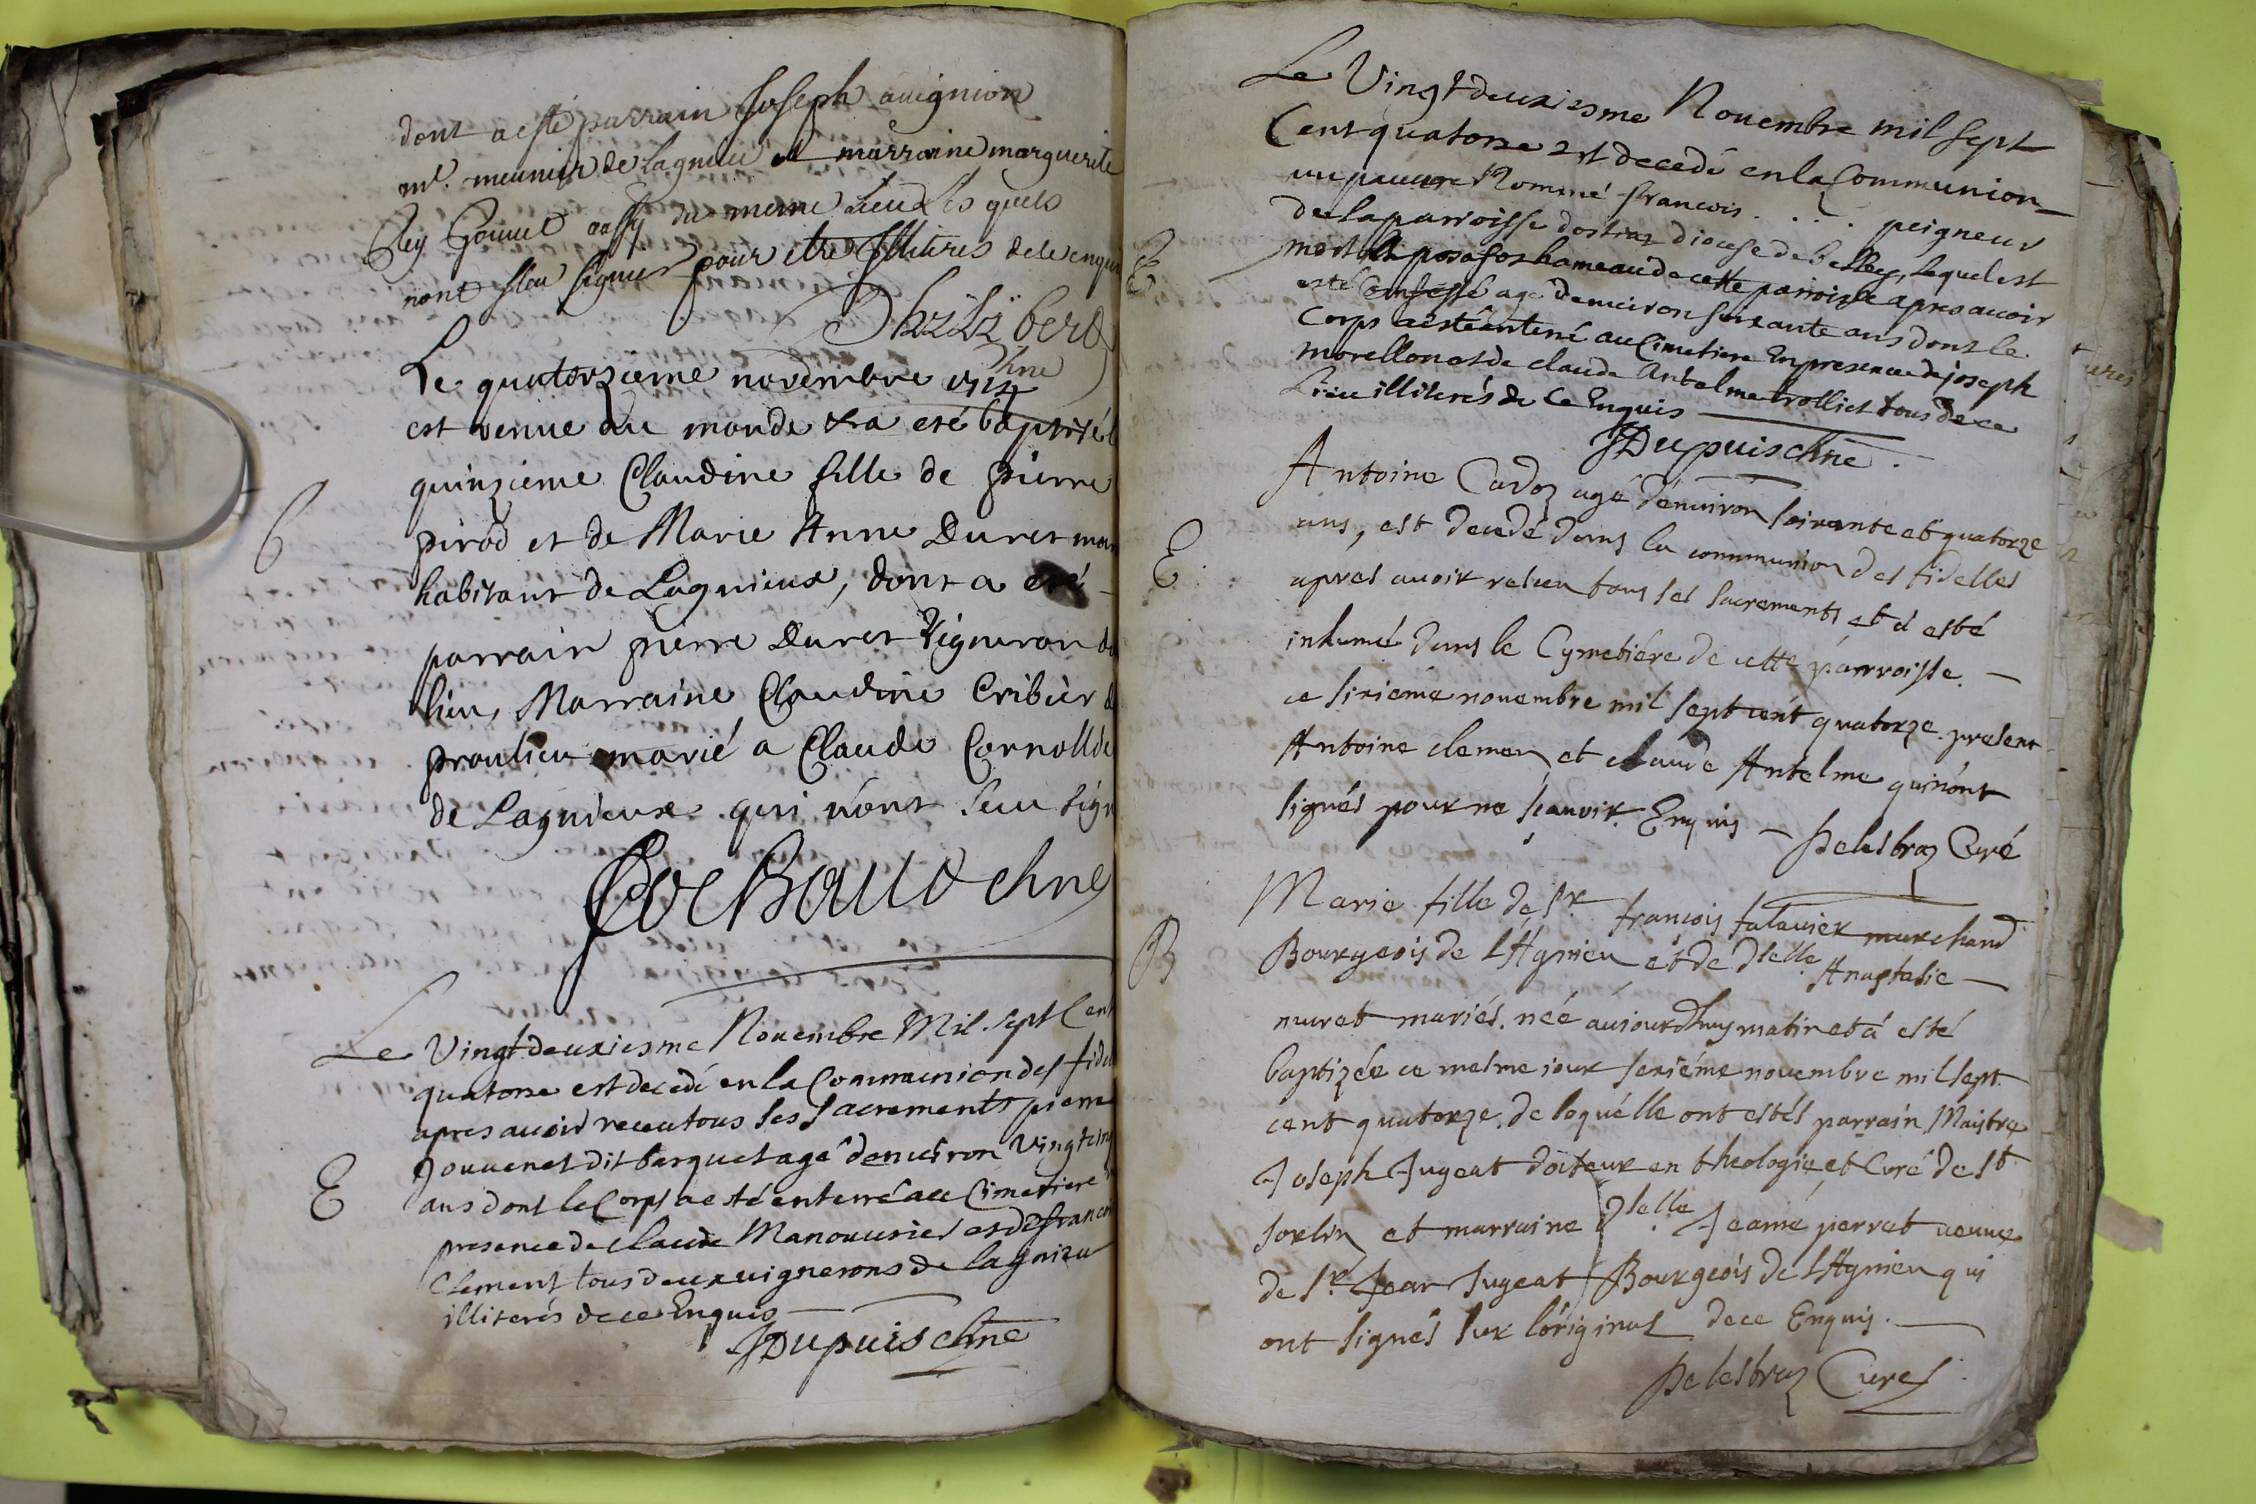 dont a esté parrain Joseph auignion
mr. meunier de lagnieu et marraine marguerite
Rey aussy du meme Lieu Les quels
nont sceu signer pour etre illiterés de ce enquis
Philibert
chne
Le quatorzieme novembre 1714
est venue au monde & a eté baptisée
quinzieme Claudine fille de pierre
pirod et de Marie Anne Duret mar
habitant de Lagnieux, dont a eté
B
parrain pierre Duret Vigneron du
lieu, Marraine Claudine Cribier d
proulieu marié a Claude Cornollde
de Lagnieux qui n'ont sceu sign
chne
Le Vingt deuxiesme Nouembre Mil sept Cent
quatorse est decedé en la Communion des fide
apres auoir receu tous ses sacrements pierre
Jouuenet dit barquet agé denuiron Vingt cinq
E
ans dont le Corps a esté enterré au Cimetiere
presence de claude Manouurier et de francoi
Clement tous deux uignerons de lagnieu
illiterés de ce Enquis
JDupuis chne
Le Vingt deuxiesme Nouembre mil sept
Cent quatorse est decedé en la Communion
un pauure Nommé francois . . . . peigneur
de la parroisse dostraz diocese de belley, lequel est
E
mort a posafot hameau de cette parroisse apres auoir
esté Confessé agé denuiron soixante ans dont le
Corps a esté enterré au Cimetiere En presence de joseph
morellon et de claude Antelme trolliet tous de ce
Lieu illiterés de Ce Enquis
JDupuis chne.
Antoine Cadoz agé d'enuiron soixante et quatorze
E
ans, est decedé dans la communion des fidelles
apres auoir receu tous ses sacrements et a esté
inhumé dans le Cymetiére de cette parroisse.
ce sixiéme nouembre mil sept cent quatorze. present
Antoine clemen et claude Antelme qui n'ont
signés pour ne scauoir. Enquis
Delesbraz Curé
Marie fille de Sr. francois falauier marchand
B
Bourgeois de LAgnieu et de Dlelle Anastasie
nuret mariés. née aujourdhuy matin et a esté
baptizée ce mesme jour sexiéme nouembre mil sept
cent quatorze. de laquélle ont estés parrain Maistre
Joseph Jugeat docteur en theologie, et Curé de St
sorlin et marraine Dlelle Jeanne perret veuue
de Sr. Jean Jugeat Bourgeois de LAgnieu qui
ont signés sur l'original de ce Enquis.
Delesbraz Curé